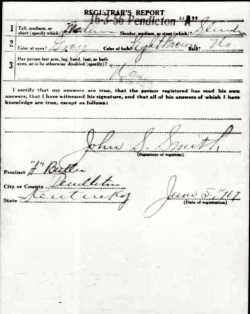 REGISTRAR'S REPORT
16-3-56 Pendleton "A"
1 Tall, medium, or short (specify which)? Medium Slender, medium, or stout (specify which)? Slender
2 Color of eyes? Grey Color of hair? Light Brown Bald? No
3 Has person lost arm, leg, hand, foot, or both eyes, or is he otherwise disabled (specify)?
No
I certify that my answers are true, that the person registered has read his own answers, that I have witnessed his signature, and that all of his answers of which I have knowledge are true, except as follows:
John S. Smith
(Signature of registrar)
Precinct "A" Butler
City or County Pendleton
State Kentucky
June 5, 1917
(Date of registration)